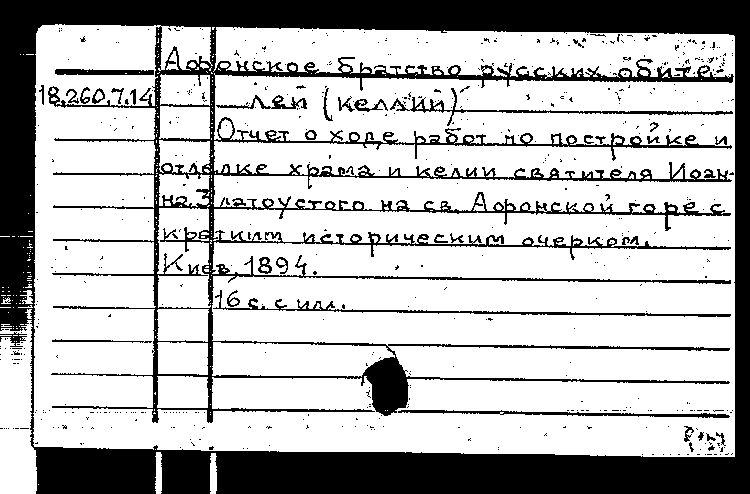 Афонское братство русских обите-
18.260.7.14
лей (келлий).
Отчет о ходе работ по постройке и
отделке храма и келии святителя Иоан-
на Златоустого на св. Афонской горе с
кратким историческим очерком.
Киев, 1894.
16 с. с илл.